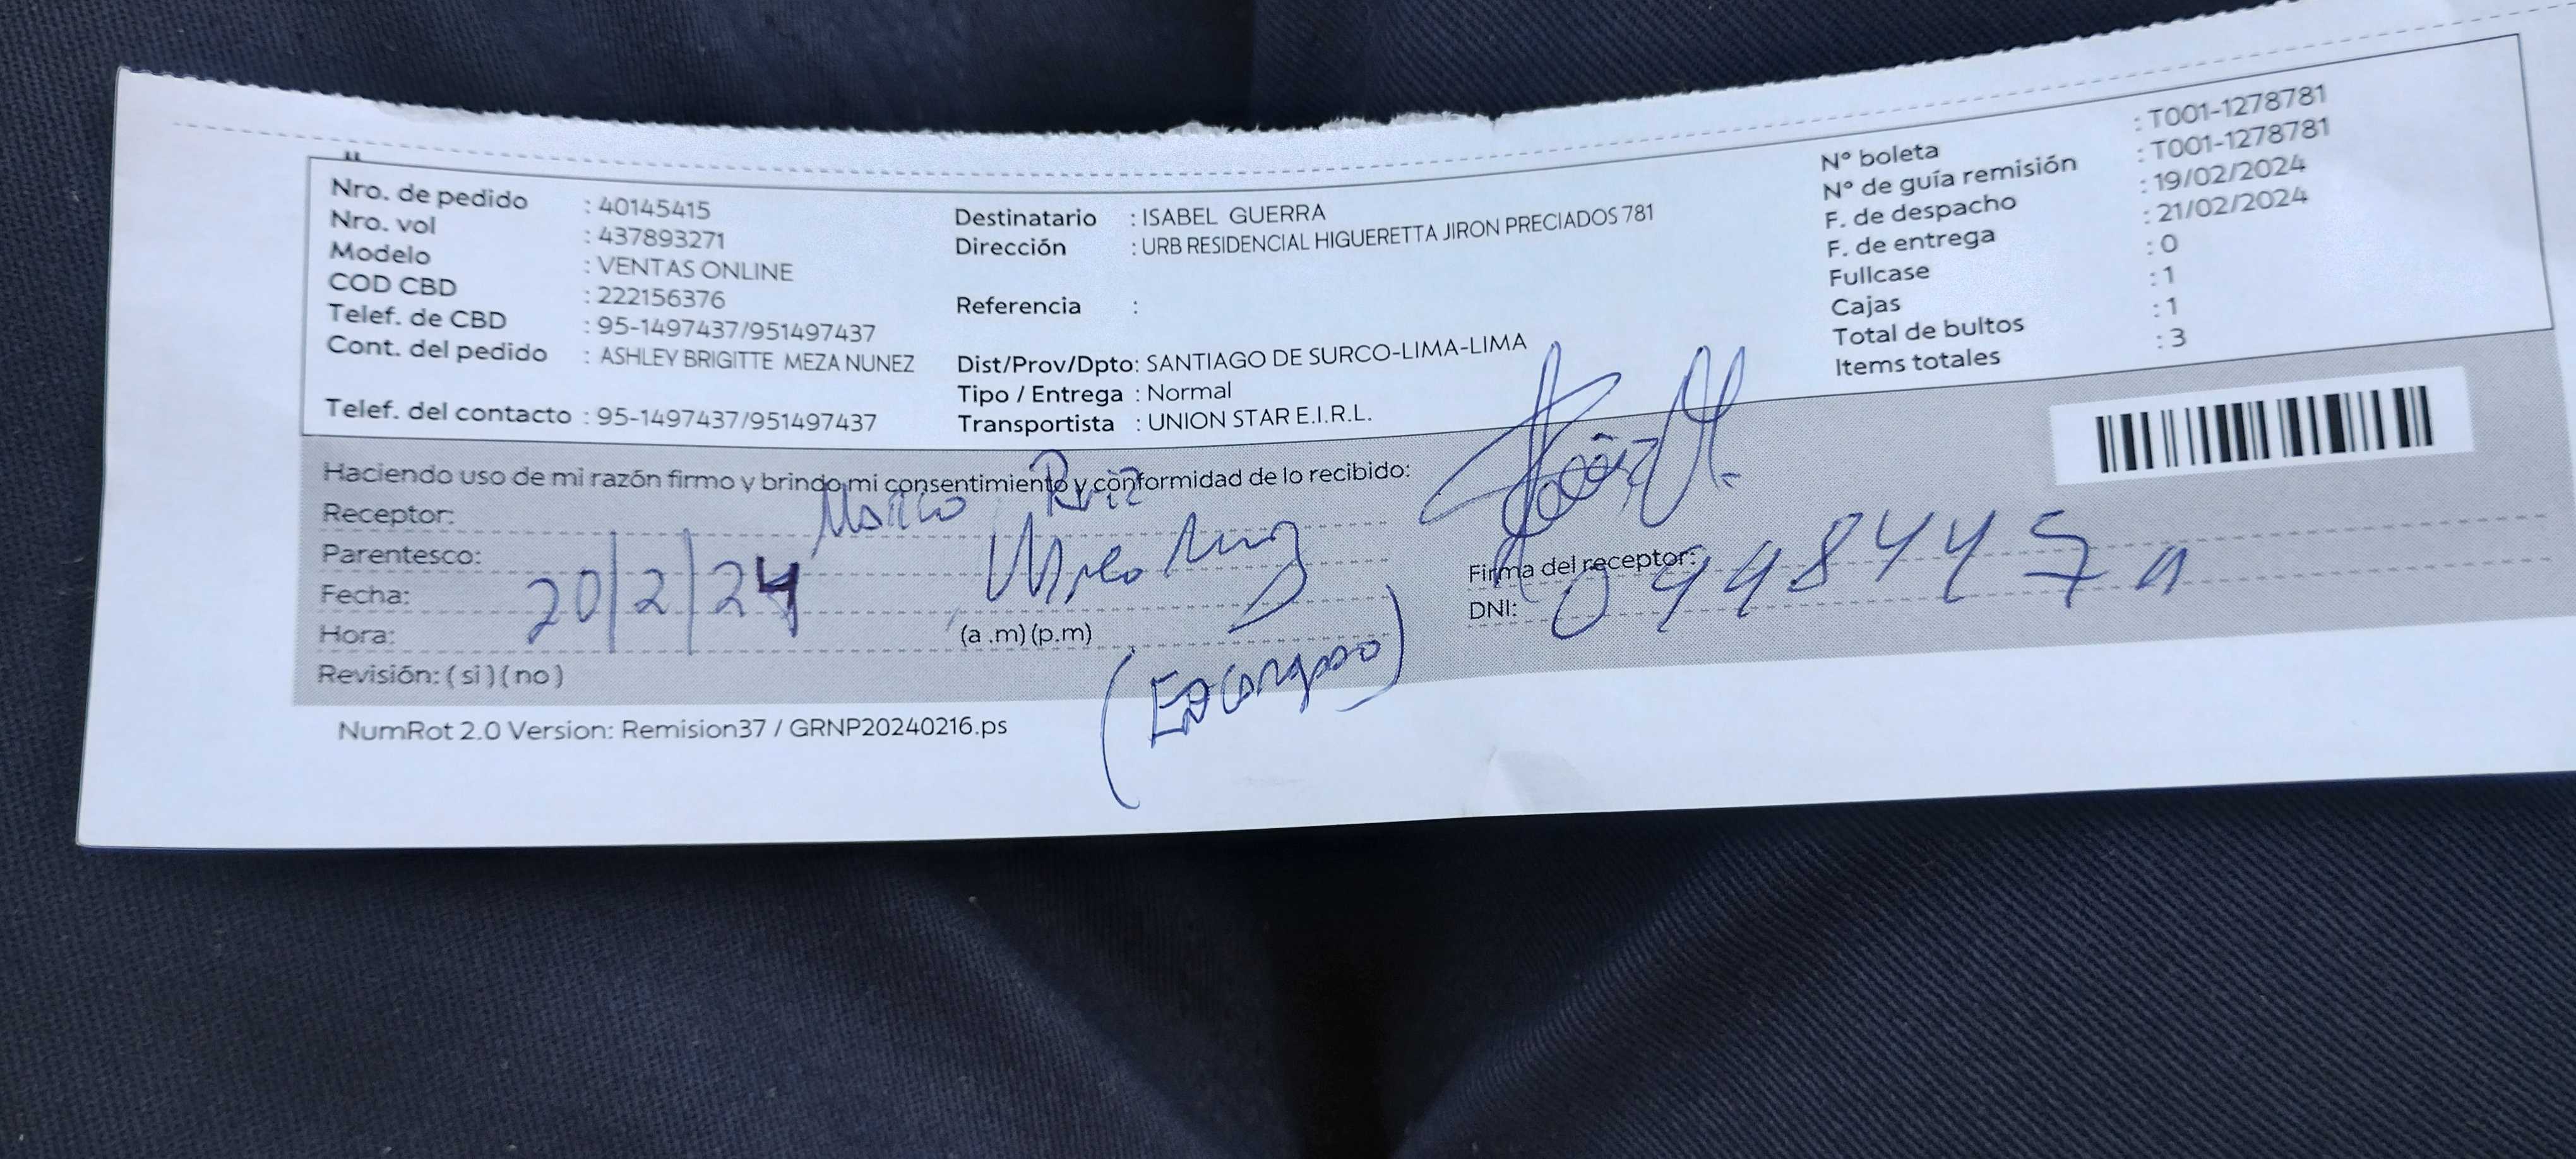 Nro. de pedido : 40145415
Nro. vol : 437893271
Modelo : VENTAS ONLINE
COD CBD : 222156376
Telef. de CBD : 95-1497437/951497437
Cont. del pedido : ASHLEY BRIGITTE MEZA NUNEZ
Telef. del contacto : 95-1497437/951497437
Destinatario : ISABEL GUERRA
Dirección : URB RESIDENCIAL HIGUERETTA JIRON PRECIADOS 781
Referencia :
Dist/Prov/Dpto: SANTIAGO DE SURCO-LIMA-LIMA
Tipo / Entrega : Normal
Transportista : UNION STAR E.I.R.L.
N° boleta : T001-1278781
N° de guía remisión : T001-1278781
F. de despacho : 19/02/2024
F. de entrega : 21/02/2024
Fullcase : 0
Cajas : 1
Total de bultos : 1
Items totales : 3
Haciendo uso de mi razón firmo y brindo mi consentimiento y conformidad de lo recibido:
Receptor: Marco Ruiz
Parentesco:
Fecha: 20/2/24
Hora: (a .m) (p.m)
Revisión: ( si ) ( no )
(Encargado)
Firma del receptor:
DNI:
NumRot 2.0 Version: Remision37 / GRNP20240216.ps